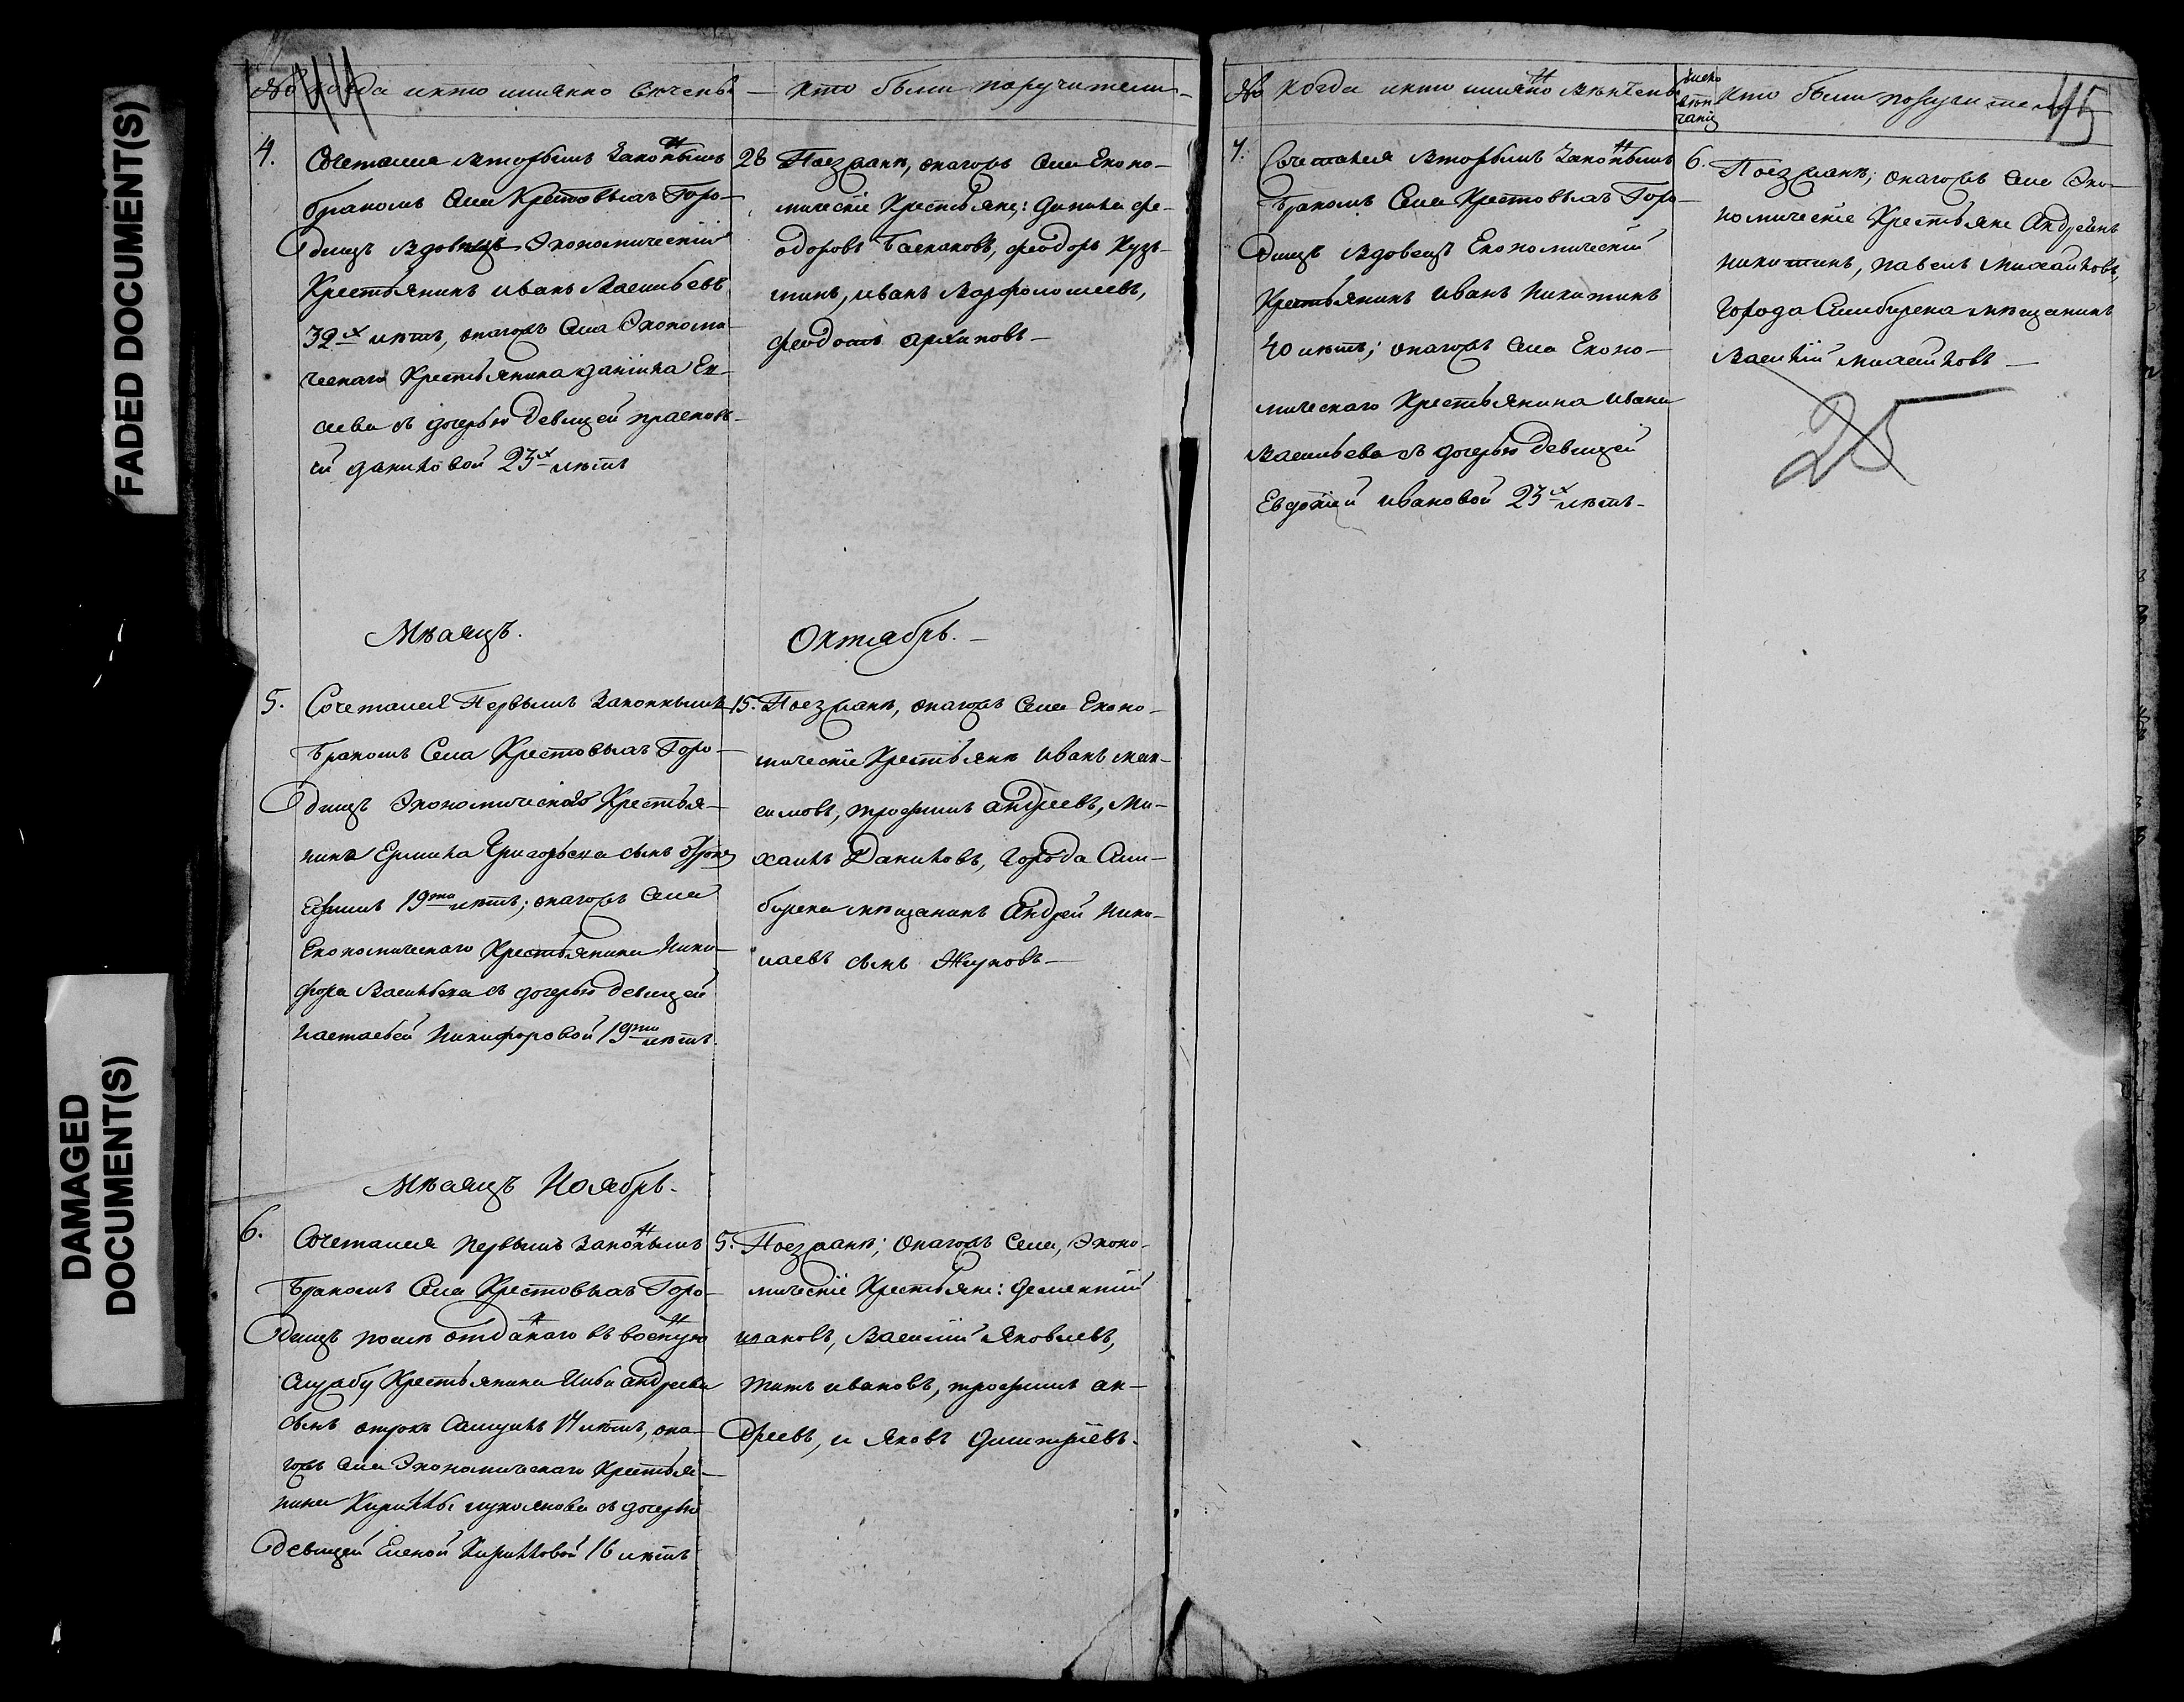 FADED DOCUMENT(S)
DAMAGED
DOCUMENT(S)
44
№ когда и кто имянно венчены
кто были поручители
4. Сочетался вторымъ законнымъ
бракомъ села Крестовыхъ Горо-
дищъ вдовецъ Экономический
Крестьянинъ иванъ Васильевъ
39х летъ, онагожъ села Экономи-
ческаго Крестьянина данiила Ев-
сеева съ дочерью девицей прасковь-
ей даниловой 23х летъ
28 Поезжанѣ, онагожъ села Еконо-
мическiе Крестьяне: Данила фе-
одоровъ Баскаковъ, феодоръ Кузь-
минъ, иванъ Варфоломеевъ,
феодотъ архиповъ
Мѣсяцъ. Октябрь.
5. Сочетался Первымъ Законнымъ
бракомъ Села Крестовыхъ Горо-
дищъ Экономическаго Крестья-
нина Ермила Григорьева сынъ отрокъ
Ефимъ 19ти летъ; онагожъ села
Економическаго Крестьянина Ники-
фора Васильева съ дочерью девицей
настасьей Никифоровой 19ти летъ.
15. Поезжанѣ, онагожъ Села Еконо-
мическiе Крестьянѣ Иванъ мак-
симовъ, трофимъ андреевъ, Ми-
хаилъ Даниловъ, города Сим-
бирска мѣщанинъ Андрей Нико-
лаевъ сынъ Жуковъ
Мѣсяцъ Ноябрь.
6. Сочетался первымъ законнымъ
бракомъ Села Крестовыхъ Горо-
дищъ послѣ отданнаго въ военную
службу Крестьянина Ильи андреева
сынъ отрокъ Самуилъ 17 летъ, она-
гожъ села Экономическаго Крестья-
нина Кириллы лукоянова съ дочерью
девицей Еленой Кириловой 16 летъ
5. Поезжанѣ; Онагожъ Села, Эконо-
мическiе Крестьяне: Дементий
ивановъ, Василий Яковлевъ,
титъ ивановъ, трофимъ ан-
дреевъ, и Яковъ Дмитрiевъ.
45
№ когда и кто имянно вѣнчены
число вѣнчанiя
кто были поручители
7. Сочетался вторымъ законнымъ
бракомъ Села Крестовыхъ Горо-
дищъ вдовецъ Економический
Крестьянинъ иванъ Никитинъ
40 летъ; онагожъ села Еконо-
мическаго Крестьянина ивана
Васильева съ дочерью девицей
Евдокiей ивановой 23х летъ
6. Поезжанѣ; онагожъ села Эко-
номическiе Крестьяне Андреянъ
никитинъ, павелъ михаиловъ,
города Симбирска мѣщанинъ
Василiй михаиловъ
25